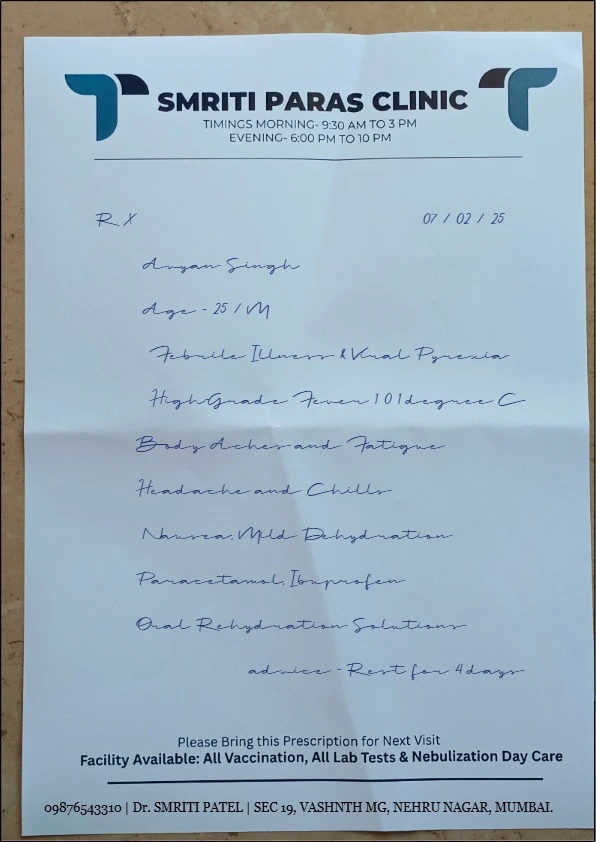 SMRITI PARAS CLINIC
TIMINGS MORNING- 9:30 AM TO 3 PM
EVENING- 6:00 PM TO 10 PM
RX 07 / 02 / 25
Avyan Singh
Age - 25 / M
Febrile Illness & Viral Pyrexia
High Grade Fever 101degree C
Body Aches and Fatigue
Headache and Chills
Nausea, Mild Dehydration
Paracetamol, Ibuprofen
Oral Rehydration Solutions
advice - Rest for 4days
Please Bring this Prescription for Next Visit
Facility Available: All Vaccination, All Lab Tests & Nebulization Day Care
09876543310 | Dr. SMRITI PATEL | SEC 19, VASHNTH MG, NEHRU NAGAR, MUMBAI.